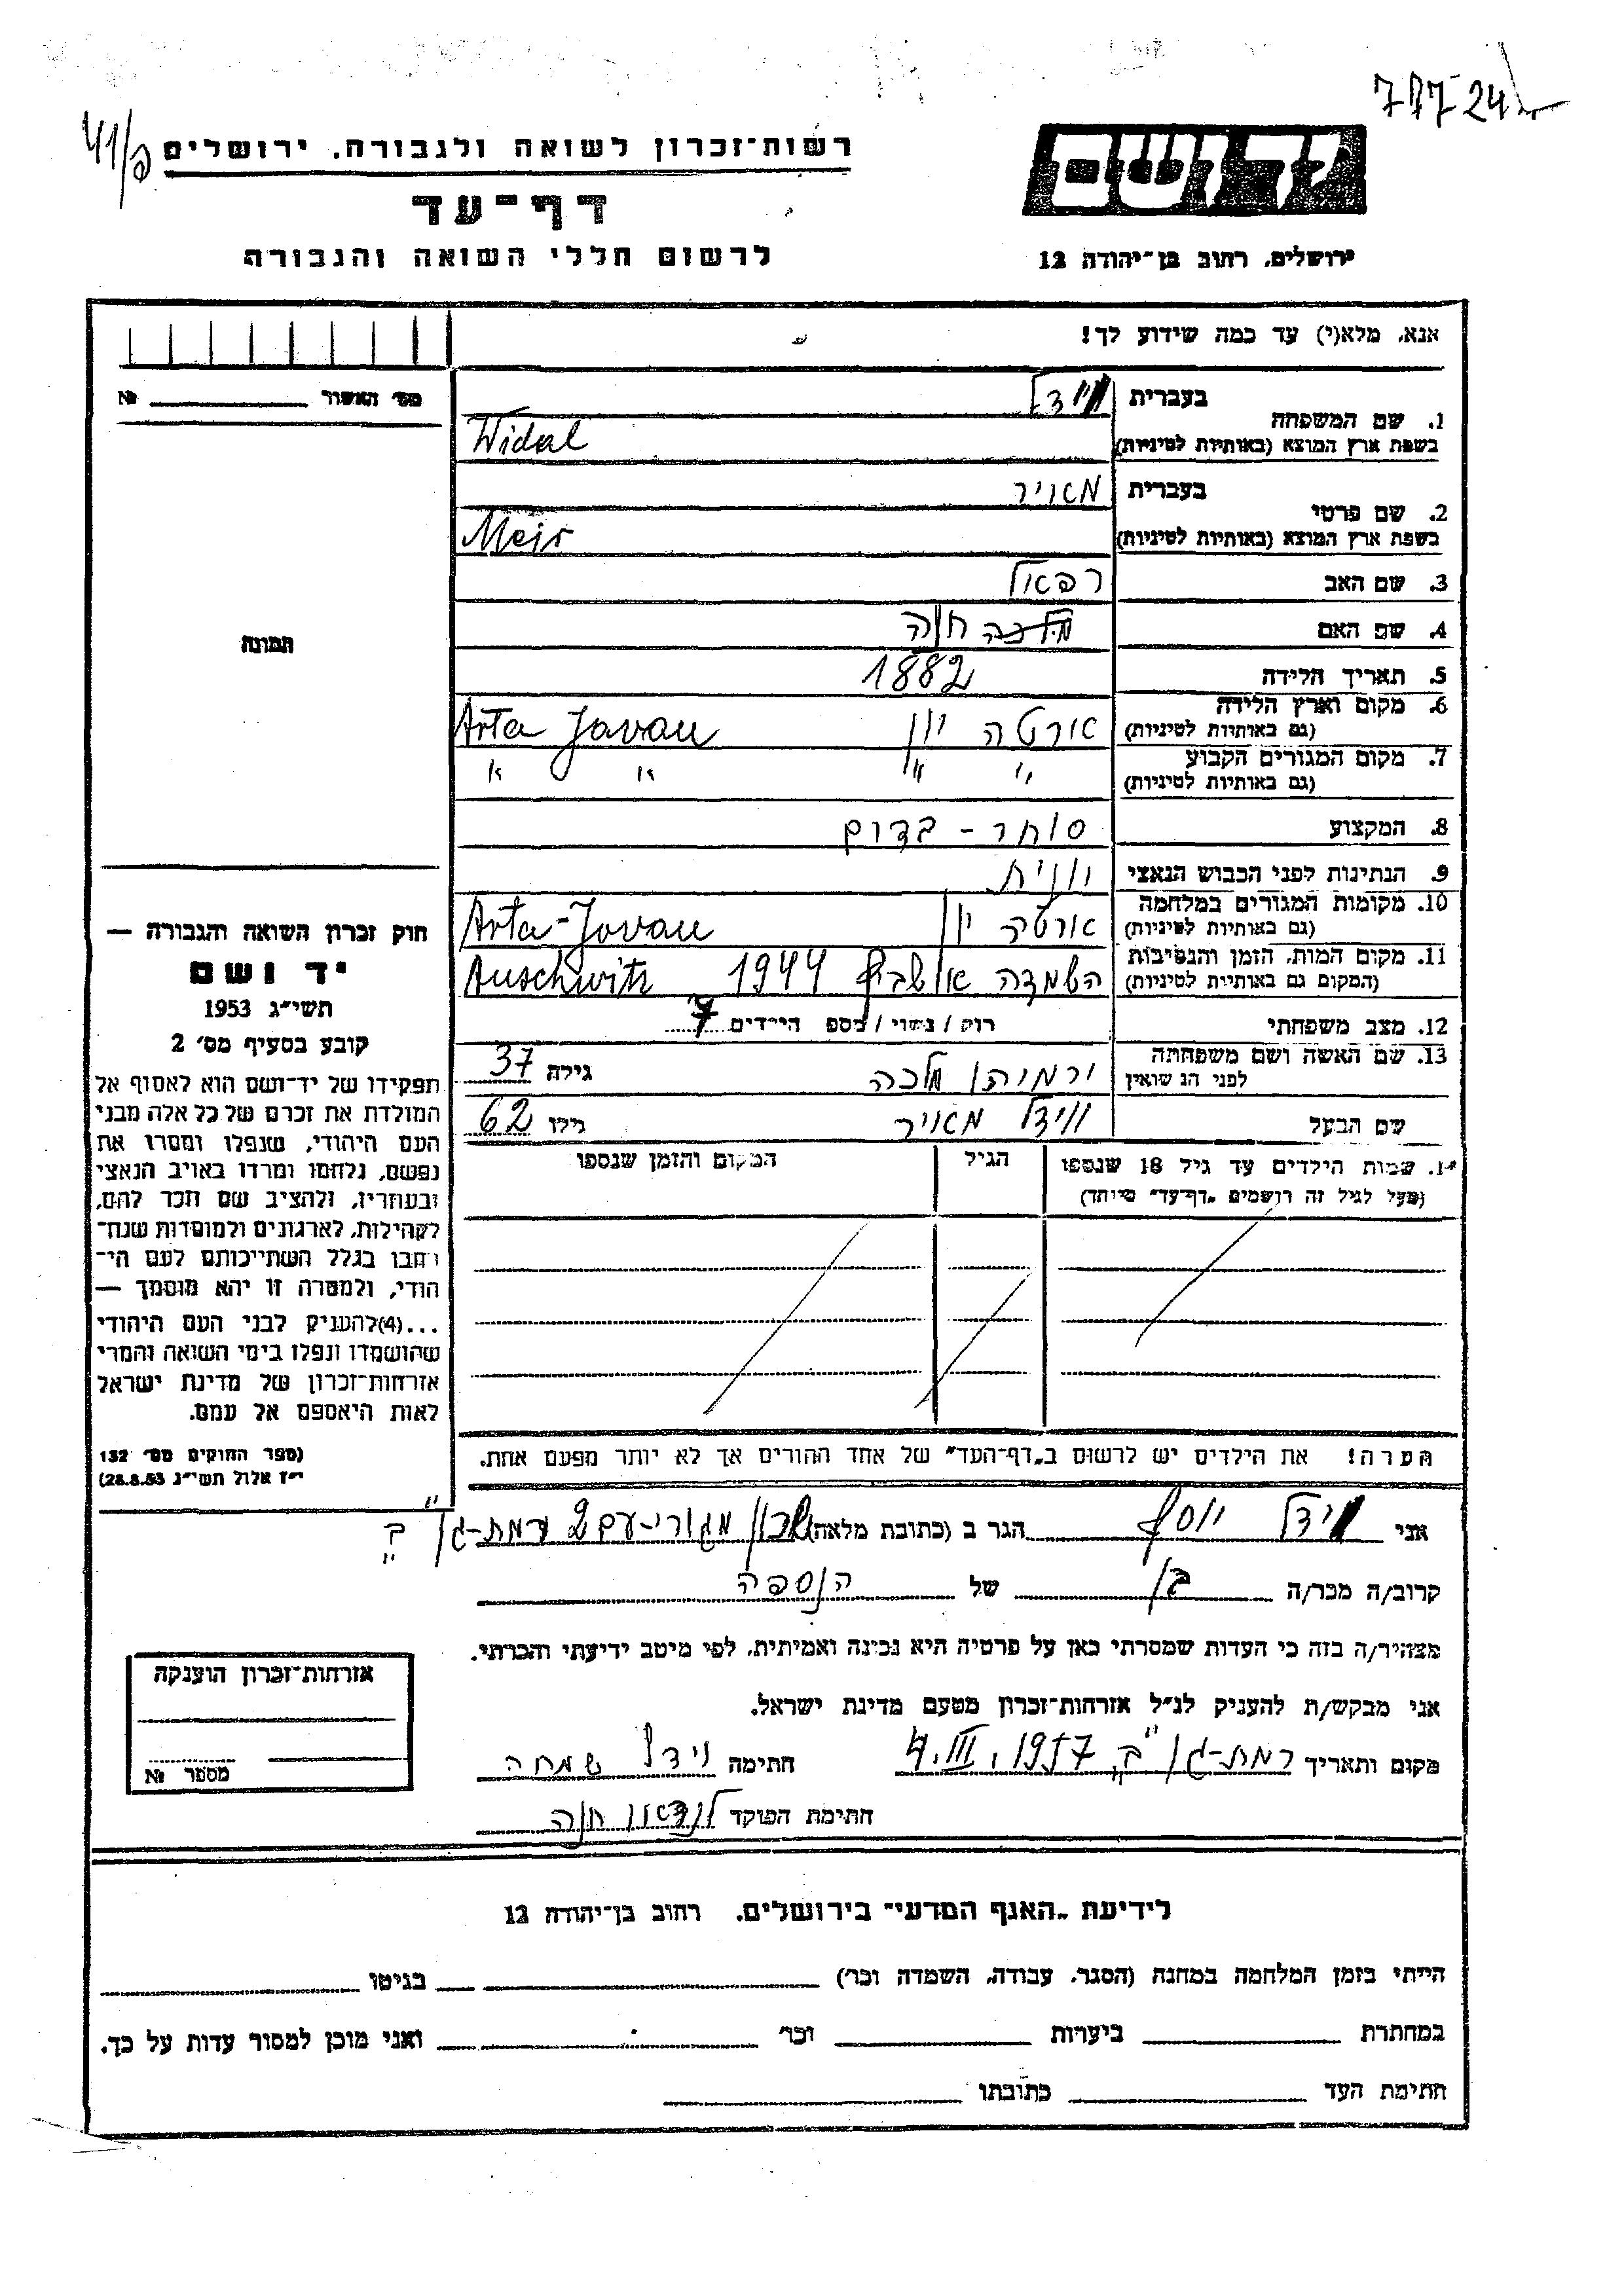 717-24
41/ק
רשות־זכרון לשואה ולגבורה, ירושלים
יד ושם
דף־עד
לרשום חללי השואה והגבורה
ירושלים, רחוב בן־יהודה 12
אנא, מלא(י) עד כמה שידוע לך!
מס׳ האשור № 
תמונה
1. שם המשפחה
בעברית וידל
בשפת ארץ המוצא (באותיות לטיניות) Widal
2. שם פרטי
בעברית מאויר
בשפת ארץ המוצא (באותיות לטיניות) Meir
3. שם האב רפאול
4. שם האם מלכה חנה
5. תאריך הלידה 1882
6. מקום וארץ הלידה (גם באותיות לטיניות) ארטה יון Arta Javau
7. מקום המגורים הקבוע (גם באותיות לטיניות) " " " "
8. המקצוע סוחר - בדים
9. הנתינות לפני הכבוש הנאצי יונית
10. מקומות המגורים במלחמה (גם באותיות לטיניות) ארטה יון Arta-Javau
11. מקום המות, הזמן והנסיבות (המקום גם באותיות לטיניות) השמדה אושביץ 1944 Auschwitz
12. מצב משפחתי רווק / נשוי / מספר הילדים 7
13. שם האשה ושם משפחתה לפני הנשואין ירמיהו מלכה גילה 37
שם הבעל וידל מאויר גילו 62
14. שמות הילדים עד גיל 18 שנספו (מעל לגיל זה רושמים „דף־עד״ מיוחד)
הגיל
המקום והזמן שנספו
הערה! את הילדים יש לרשום ב„דף־העד״ של אחד ההורים אך לא יותר מפעם אחת.
חוק זכרון השואה והגבורה —
יד ושם
תשי״ג 1953
קובע בסעיף מס׳ 2
תפקידו של יד־ושם הוא לאסוף אל
המולדת את זכרם של כל אלה מבני
העם היהודי, שנפלו ומסרו את
נפשם, נלחמו ומרדו באויב הנאצי
ובעוזריו, ולהציב שם וזכר להם,
לקהילות, לארגונים ולמוסדות שנח־
רבו בגלל השתייכותם לעם הי־
הודי, ולמטרה זו יהא מוסמך —
...(4)להעניק לבני העם היהודי
שהושמדו ונפלו בימי השואה והמרי
אזרחות־זכרון של מדינת ישראל
לאות היאספם אל עמם.
(ספר החוקים מס׳ 132
י״ז אלול תשי״ג 28.8.53)
אני וידל יוסף הגר ב (כתובת מלאה) שכון מגורי-עם 2 רמת-גן "ב"
קרוב/ה מכר/ה בן של הנספה
מצהיר/ה בזה כי העדות שמסרתי כאן על פרטיה היא נכונה ואמיתית, לפי מיטב ידיעתי והכרתי.
אני מבקש/ת להעניק לנ״ל אזרחות־זכרון מטעם מדינת ישראל.
מקום ותאריך רמת-גן "ב" 4.III.1957 חתימה וידל שמחה
חתימת הפוקד לנדאו חנה
אזרחות־זכרון הוענקה
מספר №
לידיעת „האגף המדעי״ בירושלים, רחוב בן־יהודה 12
הייתי בזמן המלחמה במחנה (הסגר, עבודה, השמדה וכר׳) בגיטו
במחתרת ביערות וכר׳ ואני מוכן למסור עדות על כך.
חתימת העד כתובתו